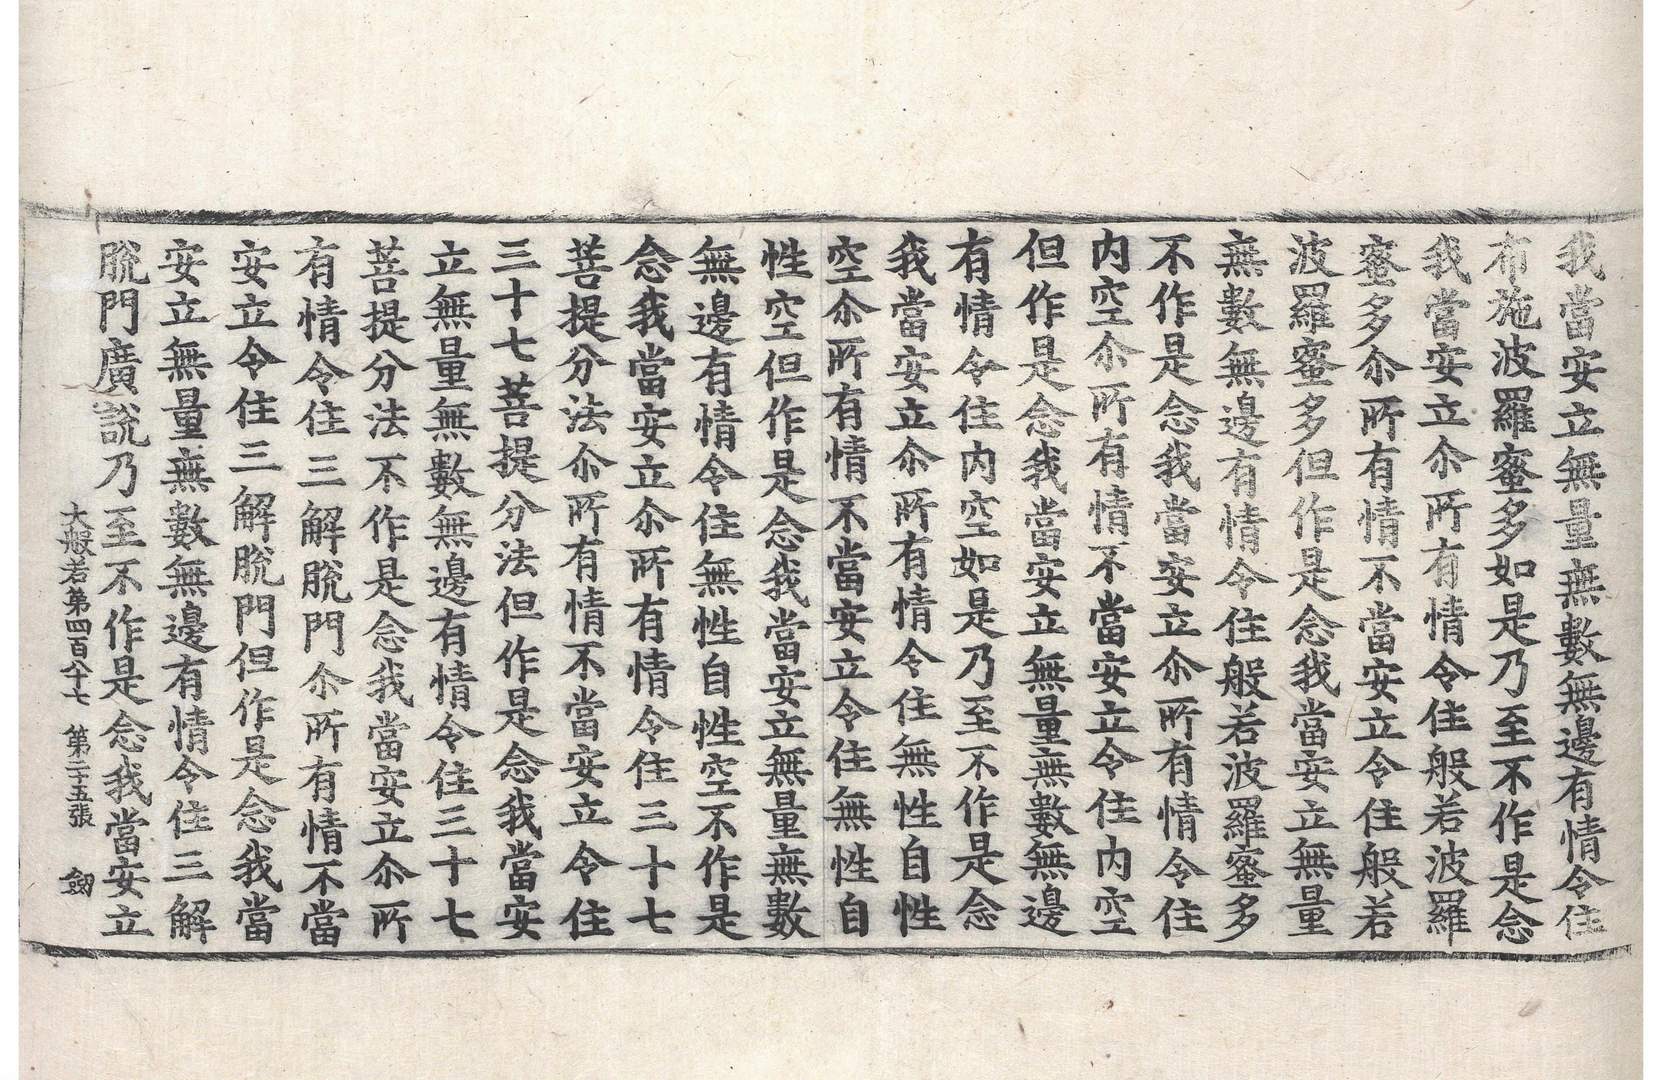 我當安立無量無數無邊有情令住
布施波羅蜜多如是乃至不作是念
我當安立尒所有情令住般若波羅
蜜多尒所有情不當安立令住般若
波羅蜜多但作是念我當安立無量
無數無邊有情令住般若波羅蜜多
不作是念我當安立尒所有情令住
内空尒所有情不當安立令住内空
但作是念我當安立無量無數無邊
有情令住内空如是乃至不作是念
我當安立尒所有情令住無性自性
空尒所有情不當安立令住無性自
性空但作是念我當安立無量無數
無邊有情令住無性自性空不作是
念我當安立尒所有情令住三十七
菩提分法尒所有情不當安立令住
三十七菩提分法但作是念我當安
立無量無數無邊有情令住三十七
菩提分法不作是念我當安立尒所
有情令住三解脫門尒所有情不當
安立令住三解脫門但作是念我當
安立無量無數無邊有情令住三解
脫門廣說乃至不作是念我當安立
大般若第四百八十七 第二十五張 劒